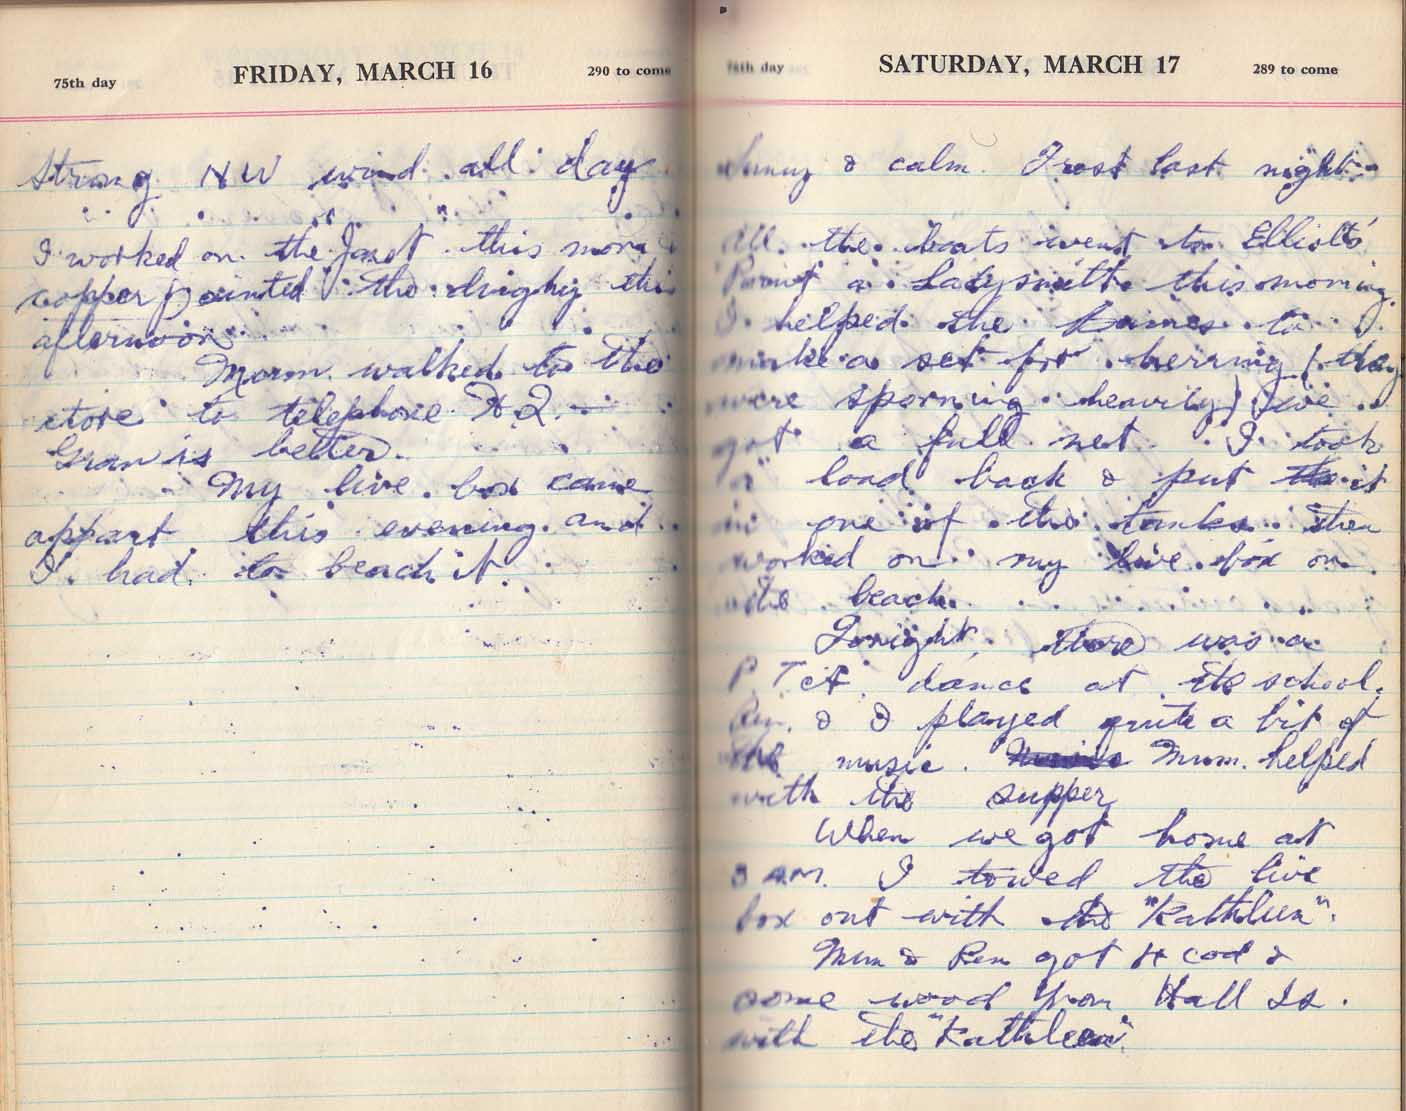 75th day FRIDAY, MARCH 16 290 to come
Strong NW wind all day
I worked on the "Janet" this morn
copper painted the dinghy this
afternoon.
Mum walked to the
store to telephone
Gran is better.
My live box came
appart this evening and
I had to beach it.
76th day SATURDAY, MARCH 17 289 to come
Sunny & calm. Frost last night.
All the boats went to Elliott's
Ladysmith this morning.
I helped the to
make a set for herring (they
were sporning heavily) we
got a full net. I took
a load back & put it
in one of the tanks. then
worked on my live box on
the beach.
Tonight there was a
P.T.A. dance at the school.
& I played quite a bit of
the music. Mum helped
with the supper
When we got home at
3 AM. I towed the live
box out with the "Kathleen".
Mum & got 4 cod &
some wood from Hall Is.
with the "Kathleen"